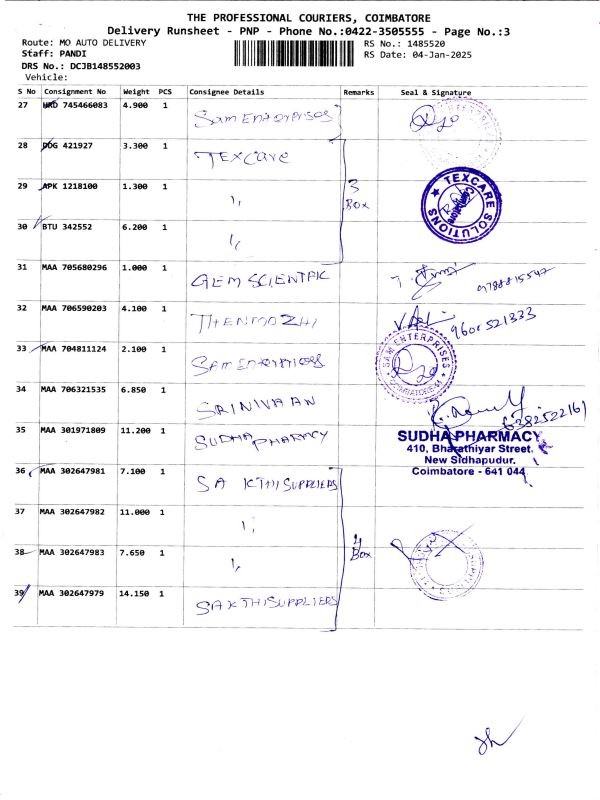 THE PROFESSIONAL COURIERS, COIMBATORE
Delivery Runsheet - PNP - Phone No.:0422-3505555 - Page No.:3
Route: MO AUTO DELIVERY RS No.: 1485520
Staff: PANDI RS Date: 04-Jan-2025
DRS No.: DCJB148552003
Vehicle:
S No Consignment No Weight PCS Consignee Details Remarks Seal & Signature
27 WRD 745466083 4.900 1 Sam Enterprises
28 DDG 421927 3.300 1 TEXCare
29 APK 1218100 1.300 1 ,, 3 Box TEXCARE SOLUTIONS
30 BTU 342552 6.200 1 ,,
31 MAA 705680296 1.000 1 GEM SCIENTFIC 9788815547
32 MAA 706590203 4.100 1 THENMOZHI 9600521333
33 MAA 704811124 2.100 1 Sam Enterprises SAM ENTERPRISES
34 MAA 706321535 6.850 1 SRINIVAAN 6382522161
35 MAA 301971809 11.200 1 SUDHA PHARMACY SUDHA PHARMACY
410, Bharathiyar Street,
New Sidhapudur.
Coimbatore - 641 044
36 MAA 302647981 7.100 1 SA KTHI SUPPLIERS
37 MAA 302647982 11.000 1 ,,
38 MAA 302647983 7.650 1 ,, 4 Box
39 MAA 302647979 14.150 1 SAKTHI SUPPLIERS